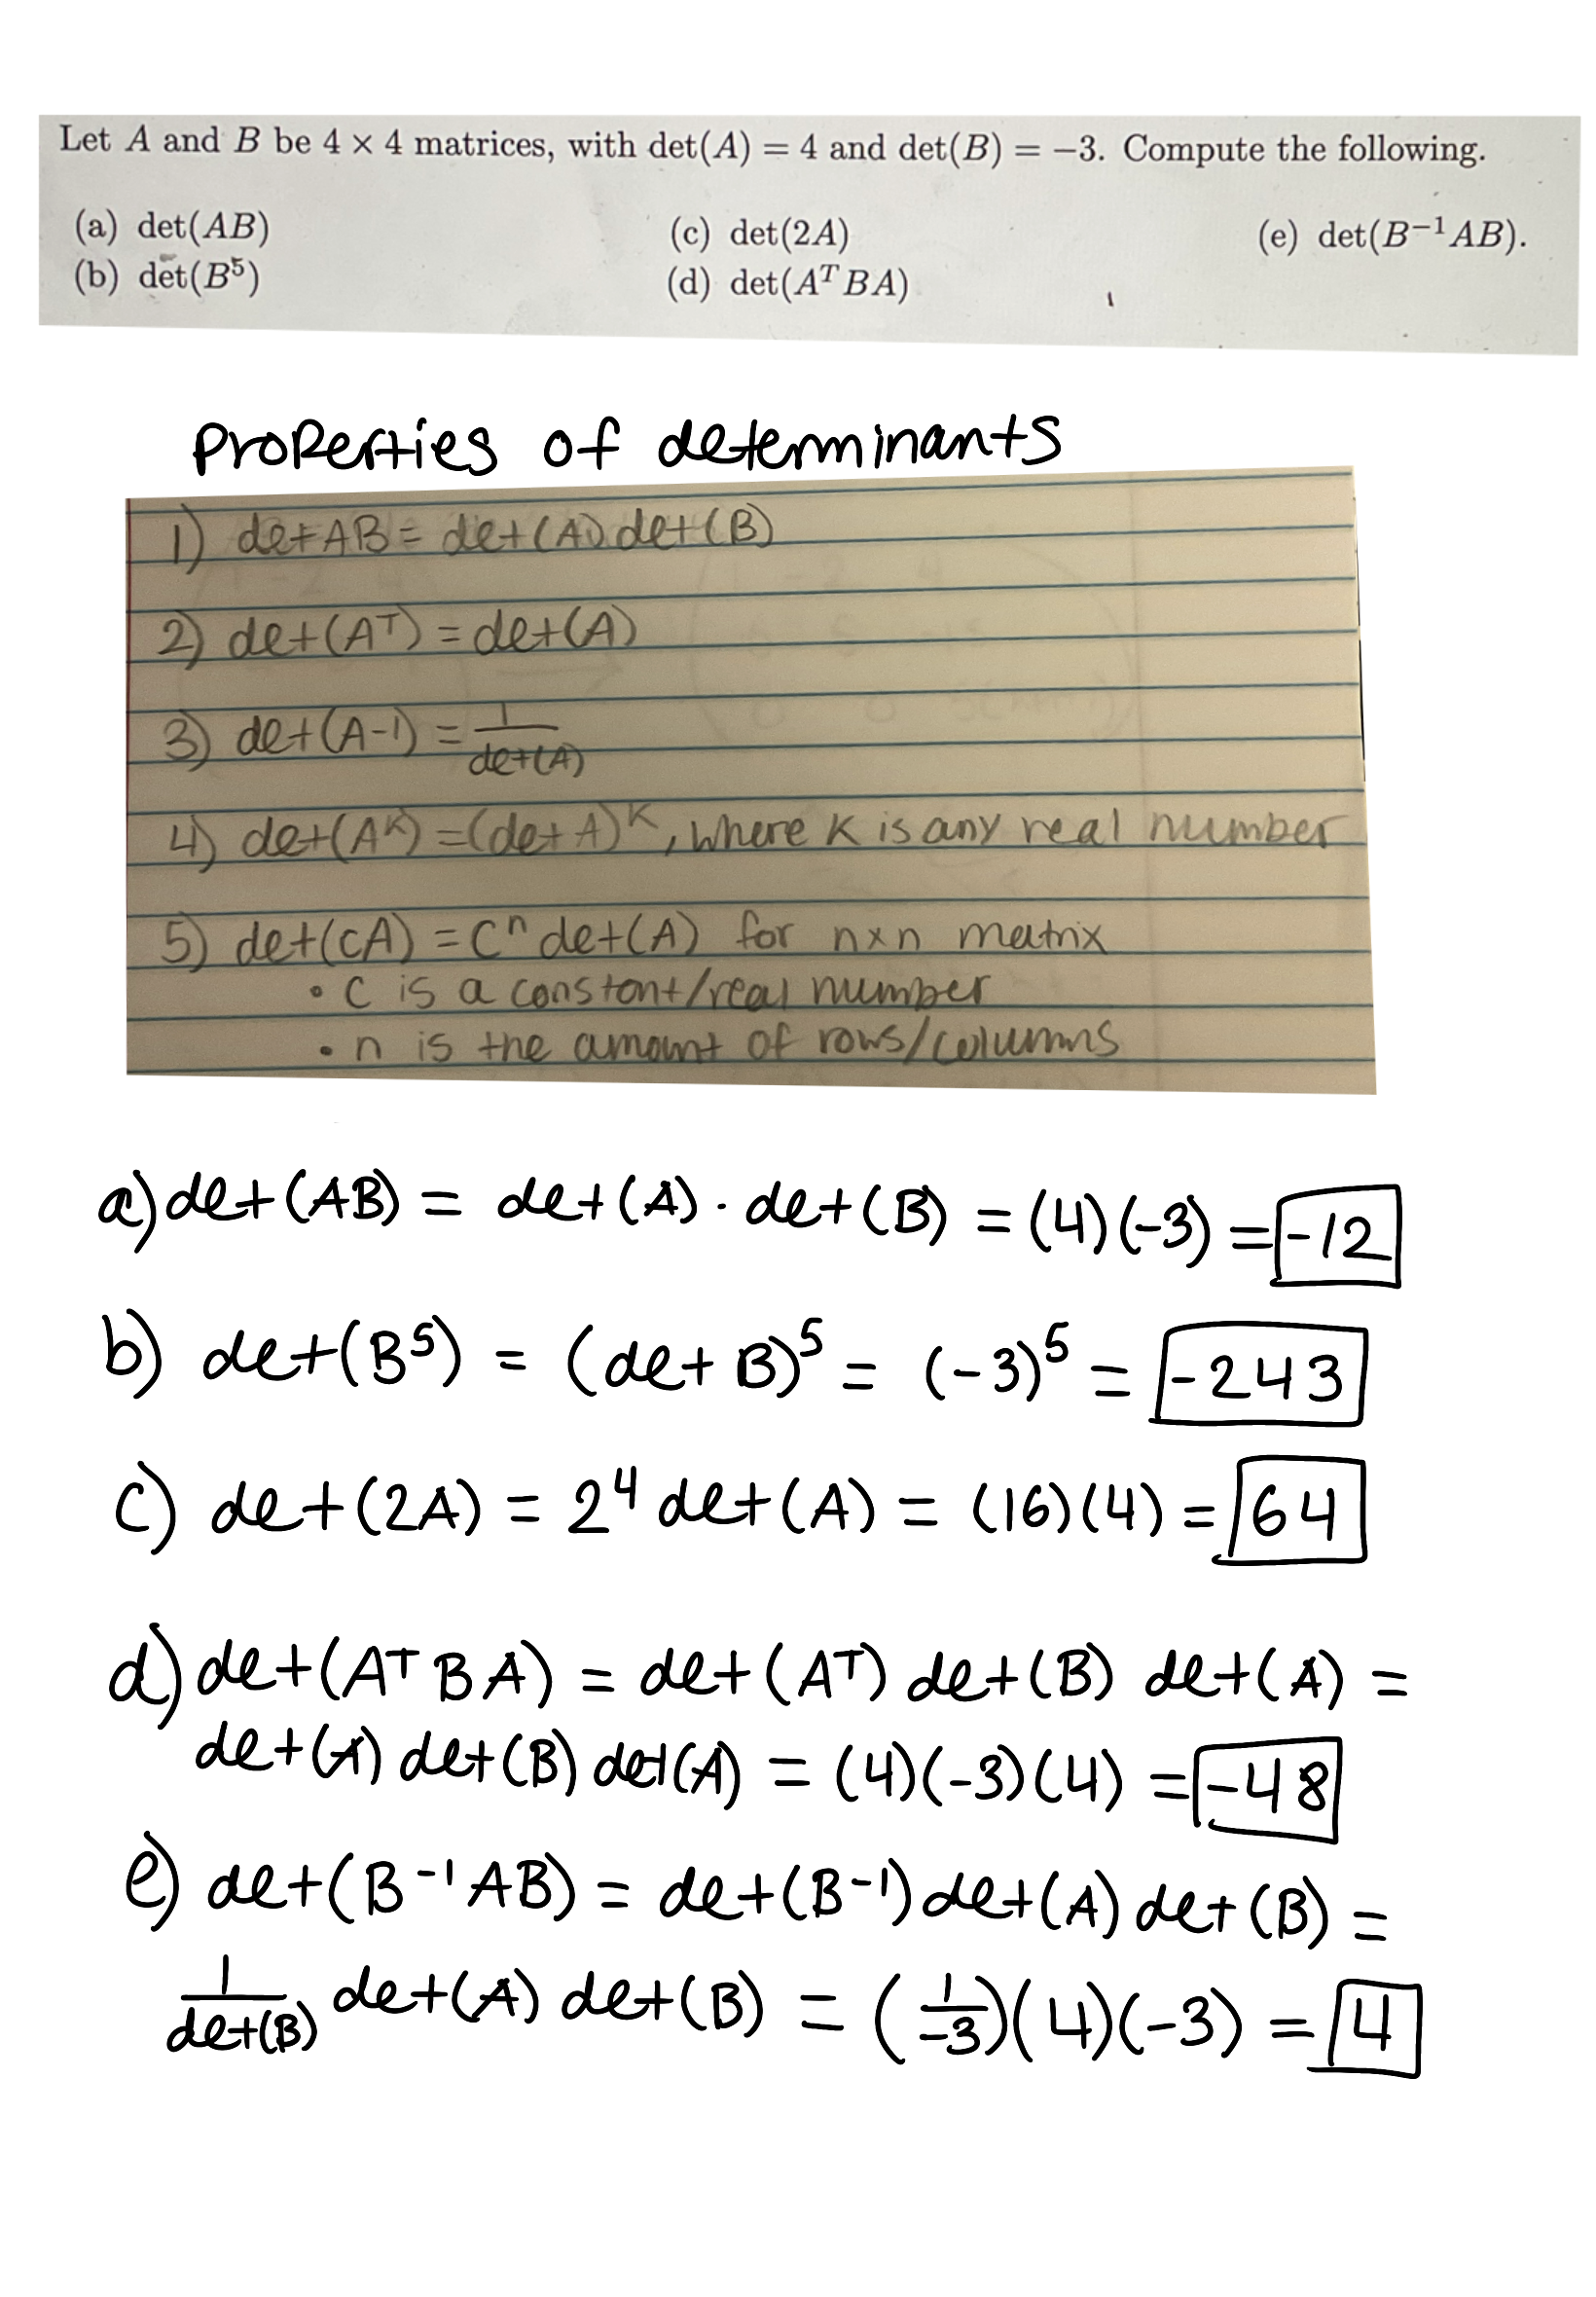 Let A and B be 4 × 4 matrices, with det(A) = 4 and det(B) = −3. Compute the following.
(a) det(AB)
(b) det(B⁵)
(c) det(2A)
(d) det(AᵀBA)
(e) det(B⁻¹AB).
Properties of determinants
1) det AB = det(A) det(B)
2) det(Aᵀ) = det(A)
3) det(A-1) = 1/det(A)
4) det(Aᴷ) = (det A)ᴷ, where K is any real number
5) det(cA) = cⁿ det(A) for n×n matrix
• c is a constant/real number
• n is the amount of rows/columns
a) det(AB) = det(A) · det(B) = (4)(-3) = -12
b) det(B⁵) = (det B)⁵ = (-3)⁵ = -243
c) det(2A) = 2⁴ det(A) = (16)(4) = 64
d) det(Aᵀ B A) = det(Aᵀ) det(B) det(A) =
det(A) det(B) det(A) = (4)(-3)(4) = -48
e) det(B⁻¹AB) = det(B⁻¹) det(A) det(B) =
1/det(B) det(A) det(B) = (1/-3)(4)(-3) = 4